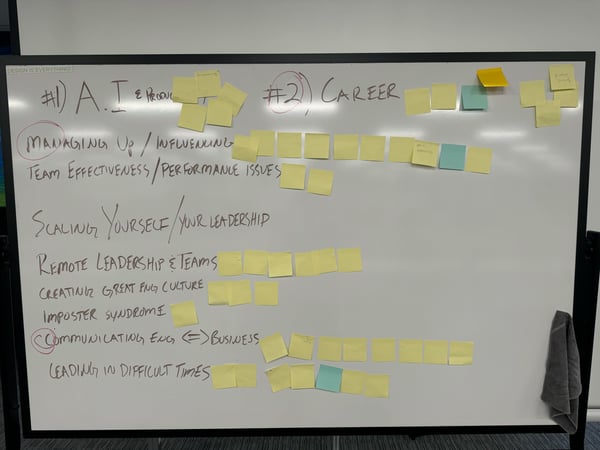 DESIGN IS EVERYTHING
#1) A.I & PRODUC
#2), CAREER
MANAGING UP / INFLUENCING
TEAM EFFECTIVENESS / PERFORMANCE ISSUES
SCALING YOURSELF / YOUR LEADERSHIP
REMOTE LEADERSHIP & TEAMS
CREATING GREAT ENG CULTURE
IMPOSTER SYNDROME
COMMUNICATING ENG <=> BUSINESS
LEADING IN DIFFICULT TIMES